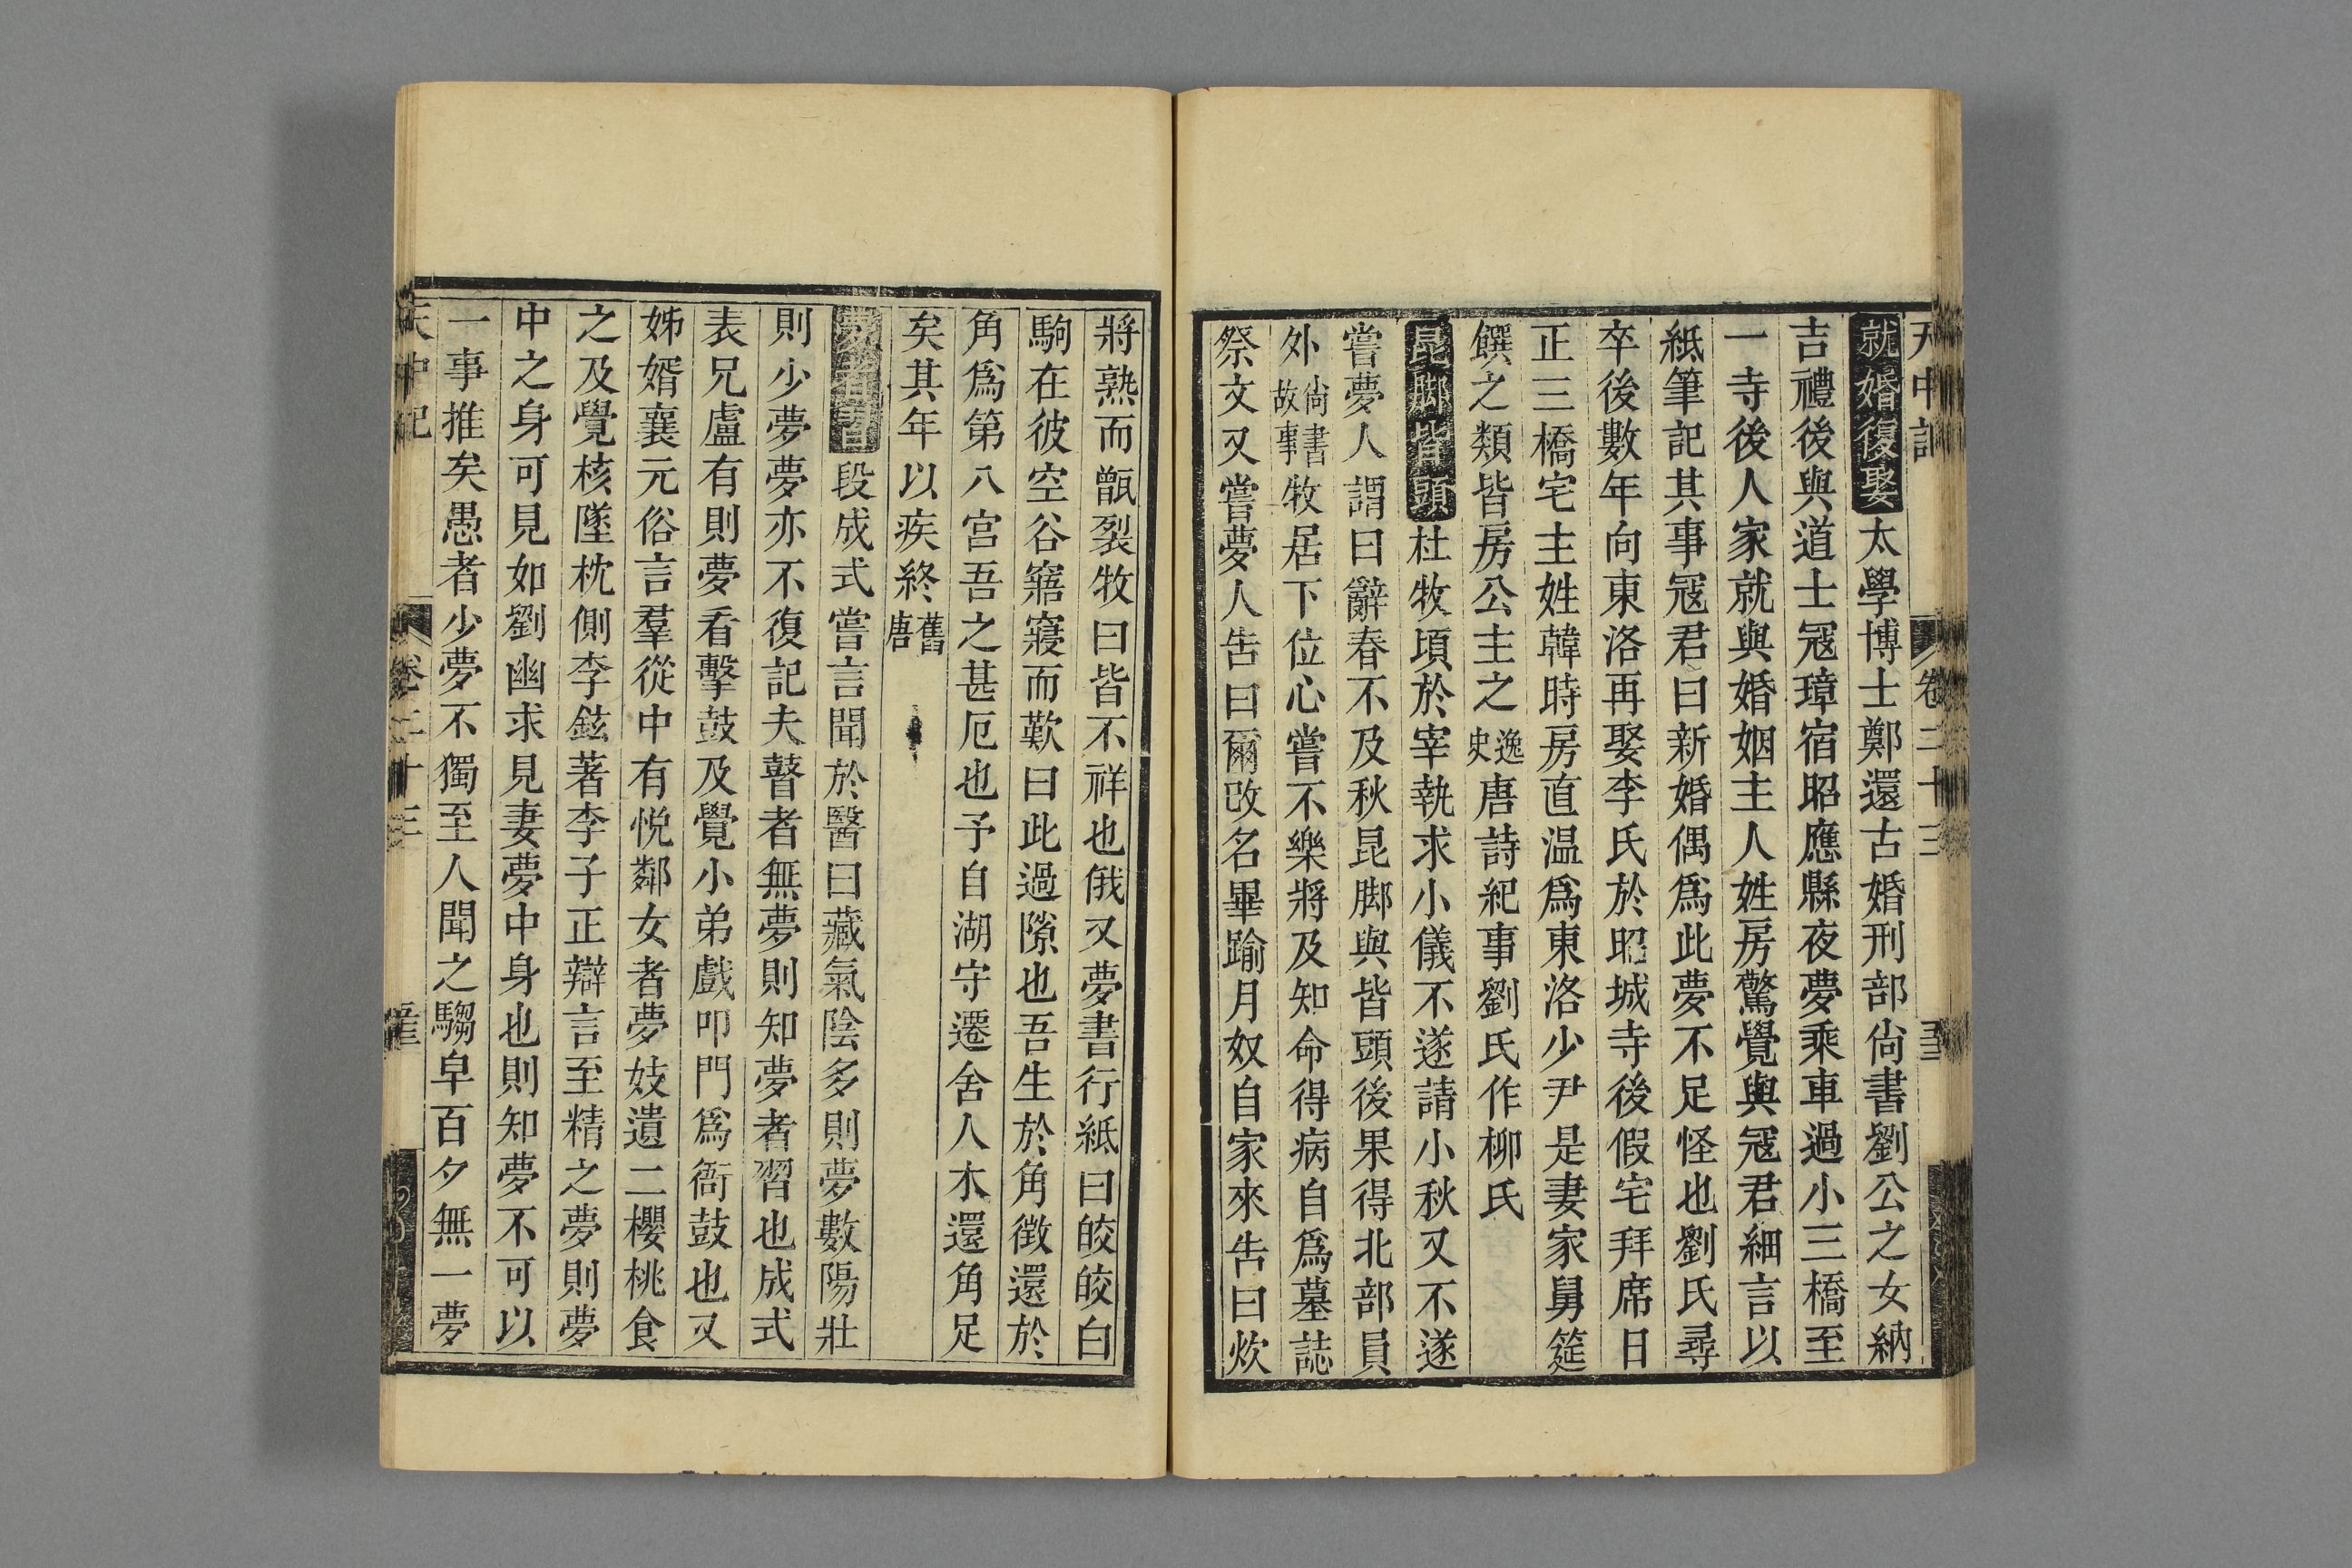 天中記 卷二十三
就婚復娶太學博士鄭還古婚刑部尙書劉公之女納
吉禮後與道士冦璋宿昭應縣夜夢乘車過小三橋至
一寺後人家就與婚姻主人姓房驚覺與冦君細言以
紙筆記其事冦君曰新婚偶爲此夢不足怪也劉氏尋
卒後數年向東洛再娶李氏於昭城寺後假宅拜席日
正三橋宅主姓韓時房直温爲東洛少尹是妻家舅筵
饌之類皆房公主之逸史唐詩紀事劉氏作柳氏
昆脚皆頭杜牧頃於宰執求小儀不遂請小秋又不遂
嘗夢人謂曰辭春不及秋昆脚與皆頭後果得北部員
外尙書故事牧居下位心嘗不樂將及知命得病自爲墓誌
祭文又嘗夢人告曰爾改名畢踰月奴自家來告曰炊
將熟而甑裂牧曰皆不祥也俄又夢書行紙曰皎皎白
駒在彼空谷寤寢而歎曰此過隙也吾生於角徵還於
角爲第八宮吾之甚厄也予自湖守遷舍人木還角足
矣其年以疾終舊唐
段成式嘗言聞於醫曰藏氣陰多則夢數陽壯
則少夢夢亦不復記夫瞽者無夢則知夢者習也成式
表兄盧有則夢看擊鼓及覺小弟戲叩門爲衙鼓也又
姊婿襄元俗言羣從中有悅鄰女者夢妓遺二櫻桃食
之及覺核墜枕側李鉉著李子正辯言至精之夢則夢
中之身可見如劉幽求見妻夢中身也則知夢不可以
一事推矣愚者少夢不獨至人聞之騶皁百夕無一夢
天中記 卷二十三